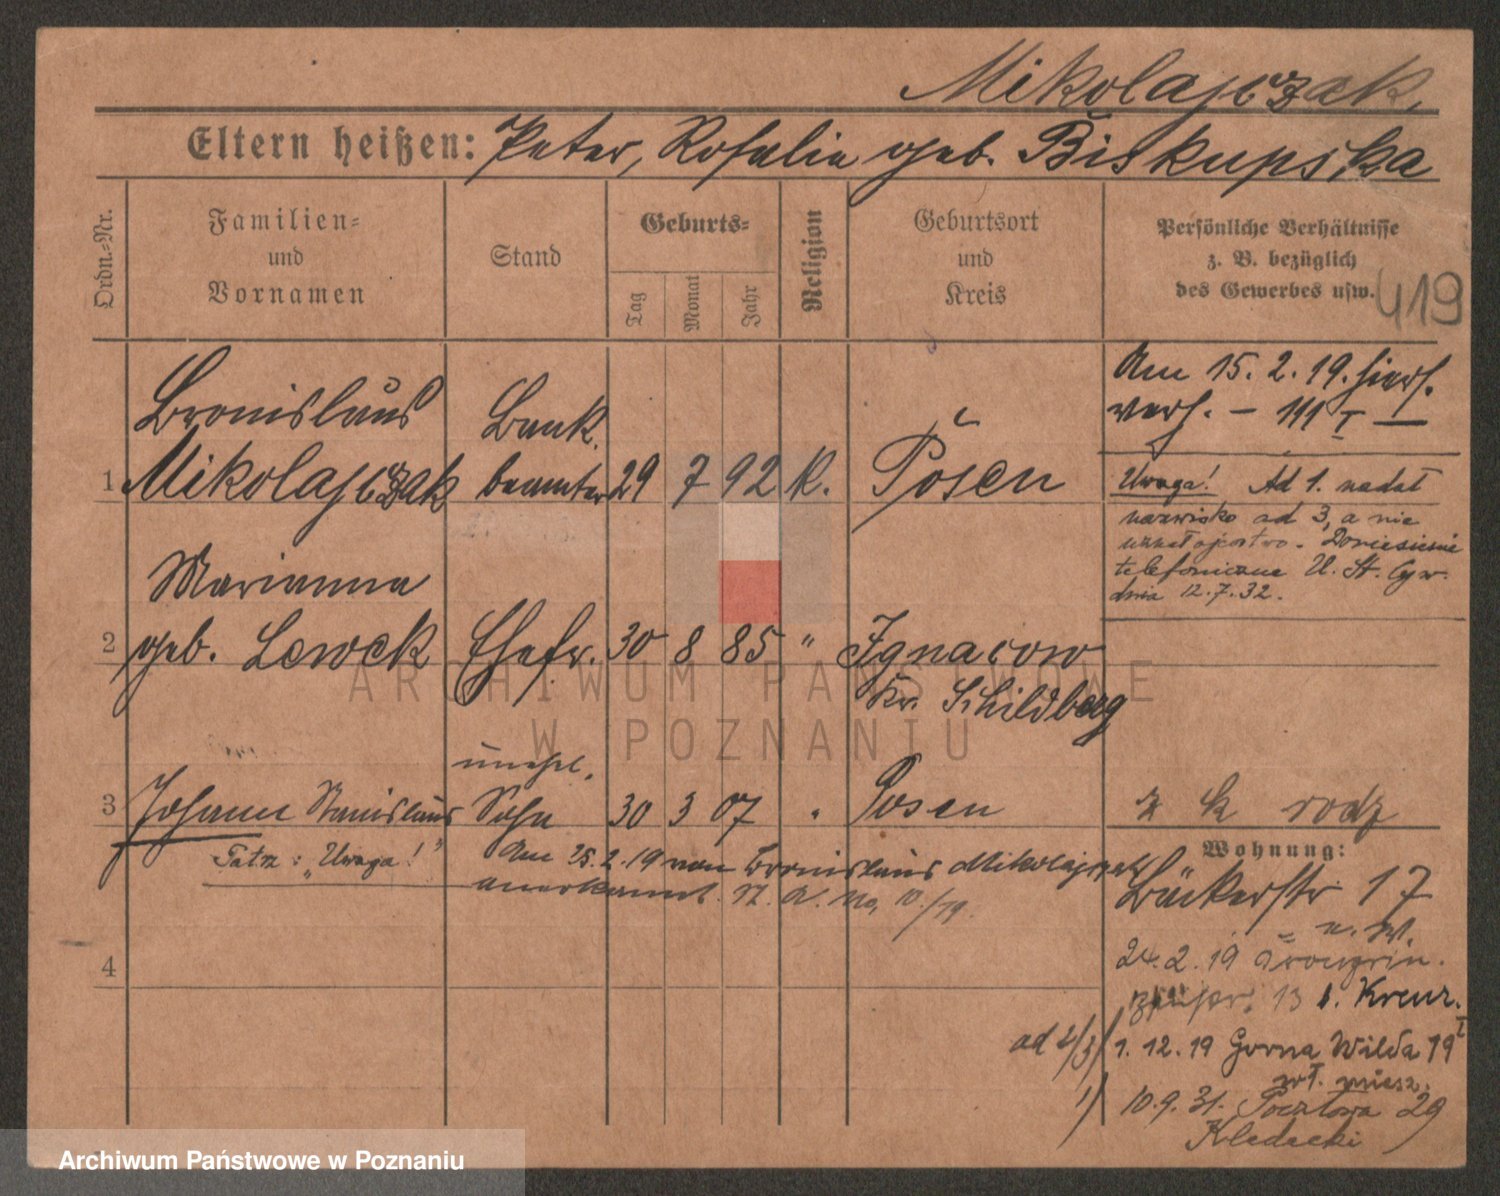 Mikolajczak.
Eltern heißen: Peter, Rosalie geb. Biskupska
Ordn.-Nr.
Familien-
und
Vornamen
Stand
Geburts-
Tag
Monat
Jahr
Religion
Geburtsort
und
Kreis
Persönliche Verhältnisse
z. B. bezüglich
des Gewerbes usw.
419
Bronislaus
Mikolajczak
Bank
beamter
1
29 7 92 K. Posen
Am 15. 2. 19. hier
verh. – III I –
Uwaga! Ad 1. nadał
nazwisko ad 3, a nie
uznał ojcostwo. Doniesienie
telefoniczne U. St. Cyw.
dnia 12.7.32.
Marianna
2 geb. Lewek Ehefr. 30 8 85 " Ignacow
Kr. Schildberg
unehl.
3 Johann Stanislaus Sohn 30 3 07 " Posen
z k rodz
Patrz: "Uwaga!"
Am 25.2.19 von Bronislaus Mikolajczak
anerkannt. St. A. No, 10/19.
Wohnung:
Bäckerstr 17
n. W.
24.2.19
13 b. Kreuz.
4
ad 2/3/ 1. 12. 19 Gorna Wilda 19 I
wł. miesz.
1) 10.9.31. Pocztowa 29
Kladecki
ARCHIWUM PAŃSTWOWE
W POZNANIU
Archiwum Państwowe w Poznaniu